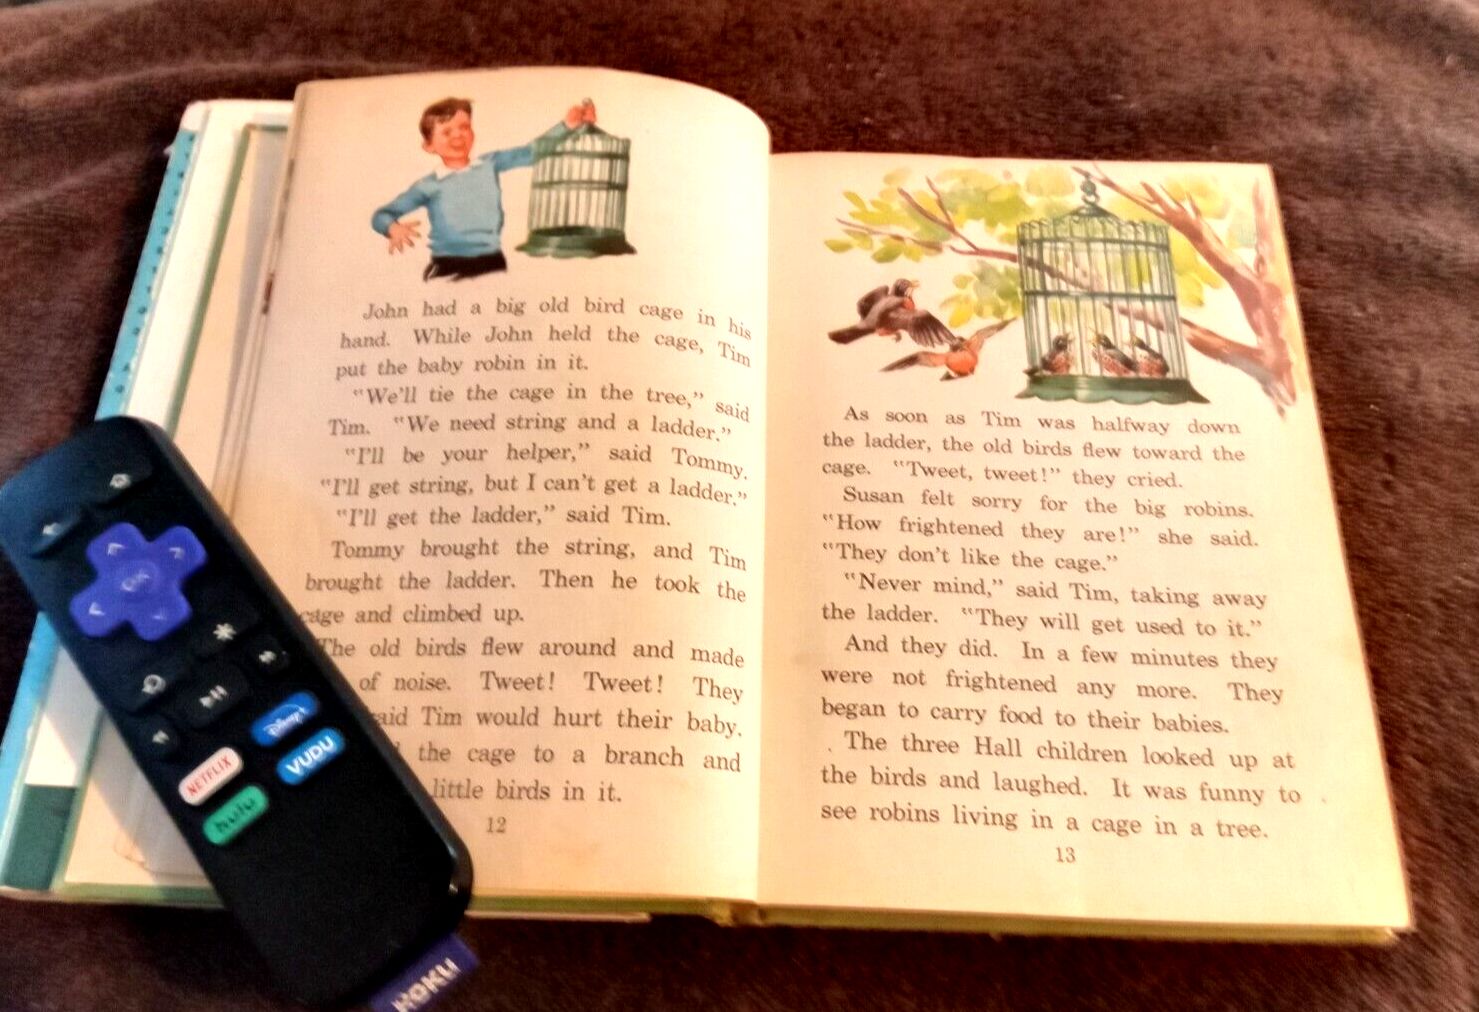 John had a big old bird cage in his
hand. While John held the cage, Tim
put the baby robin in it.
"We'll tie the cage in the tree," said
Tim. "We need string and a ladder."
"I'll be your helper," said Tommy.
"I'll get string, but I can't get a ladder."
"I'll get the ladder," said Tim.
Tommy brought the string, and Tim
brought the ladder. Then he took the
cage and climbed up.
The old birds flew around and made
of noise. Tweet! Tweet! They
Tim would hurt their baby.
the cage to a branch and
little birds in it.
12
As soon as Tim was halfway down
the ladder, the old birds flew toward the
cage. "Tweet, tweet!" they cried.
Susan felt sorry for the big robins.
"How frightened they are!" she said.
"They don't like the cage."
"Never mind," said Tim, taking away
the ladder. "They will get used to it."
And they did. In a few minutes they
were not frightened any more. They
began to carry food to their babies.
The three Hall children looked up at
the birds and laughed. It was funny to
see robins living in a cage in a tree.
13
OK
NETFLIX
Disney+
hulu
VUDU
ROKU